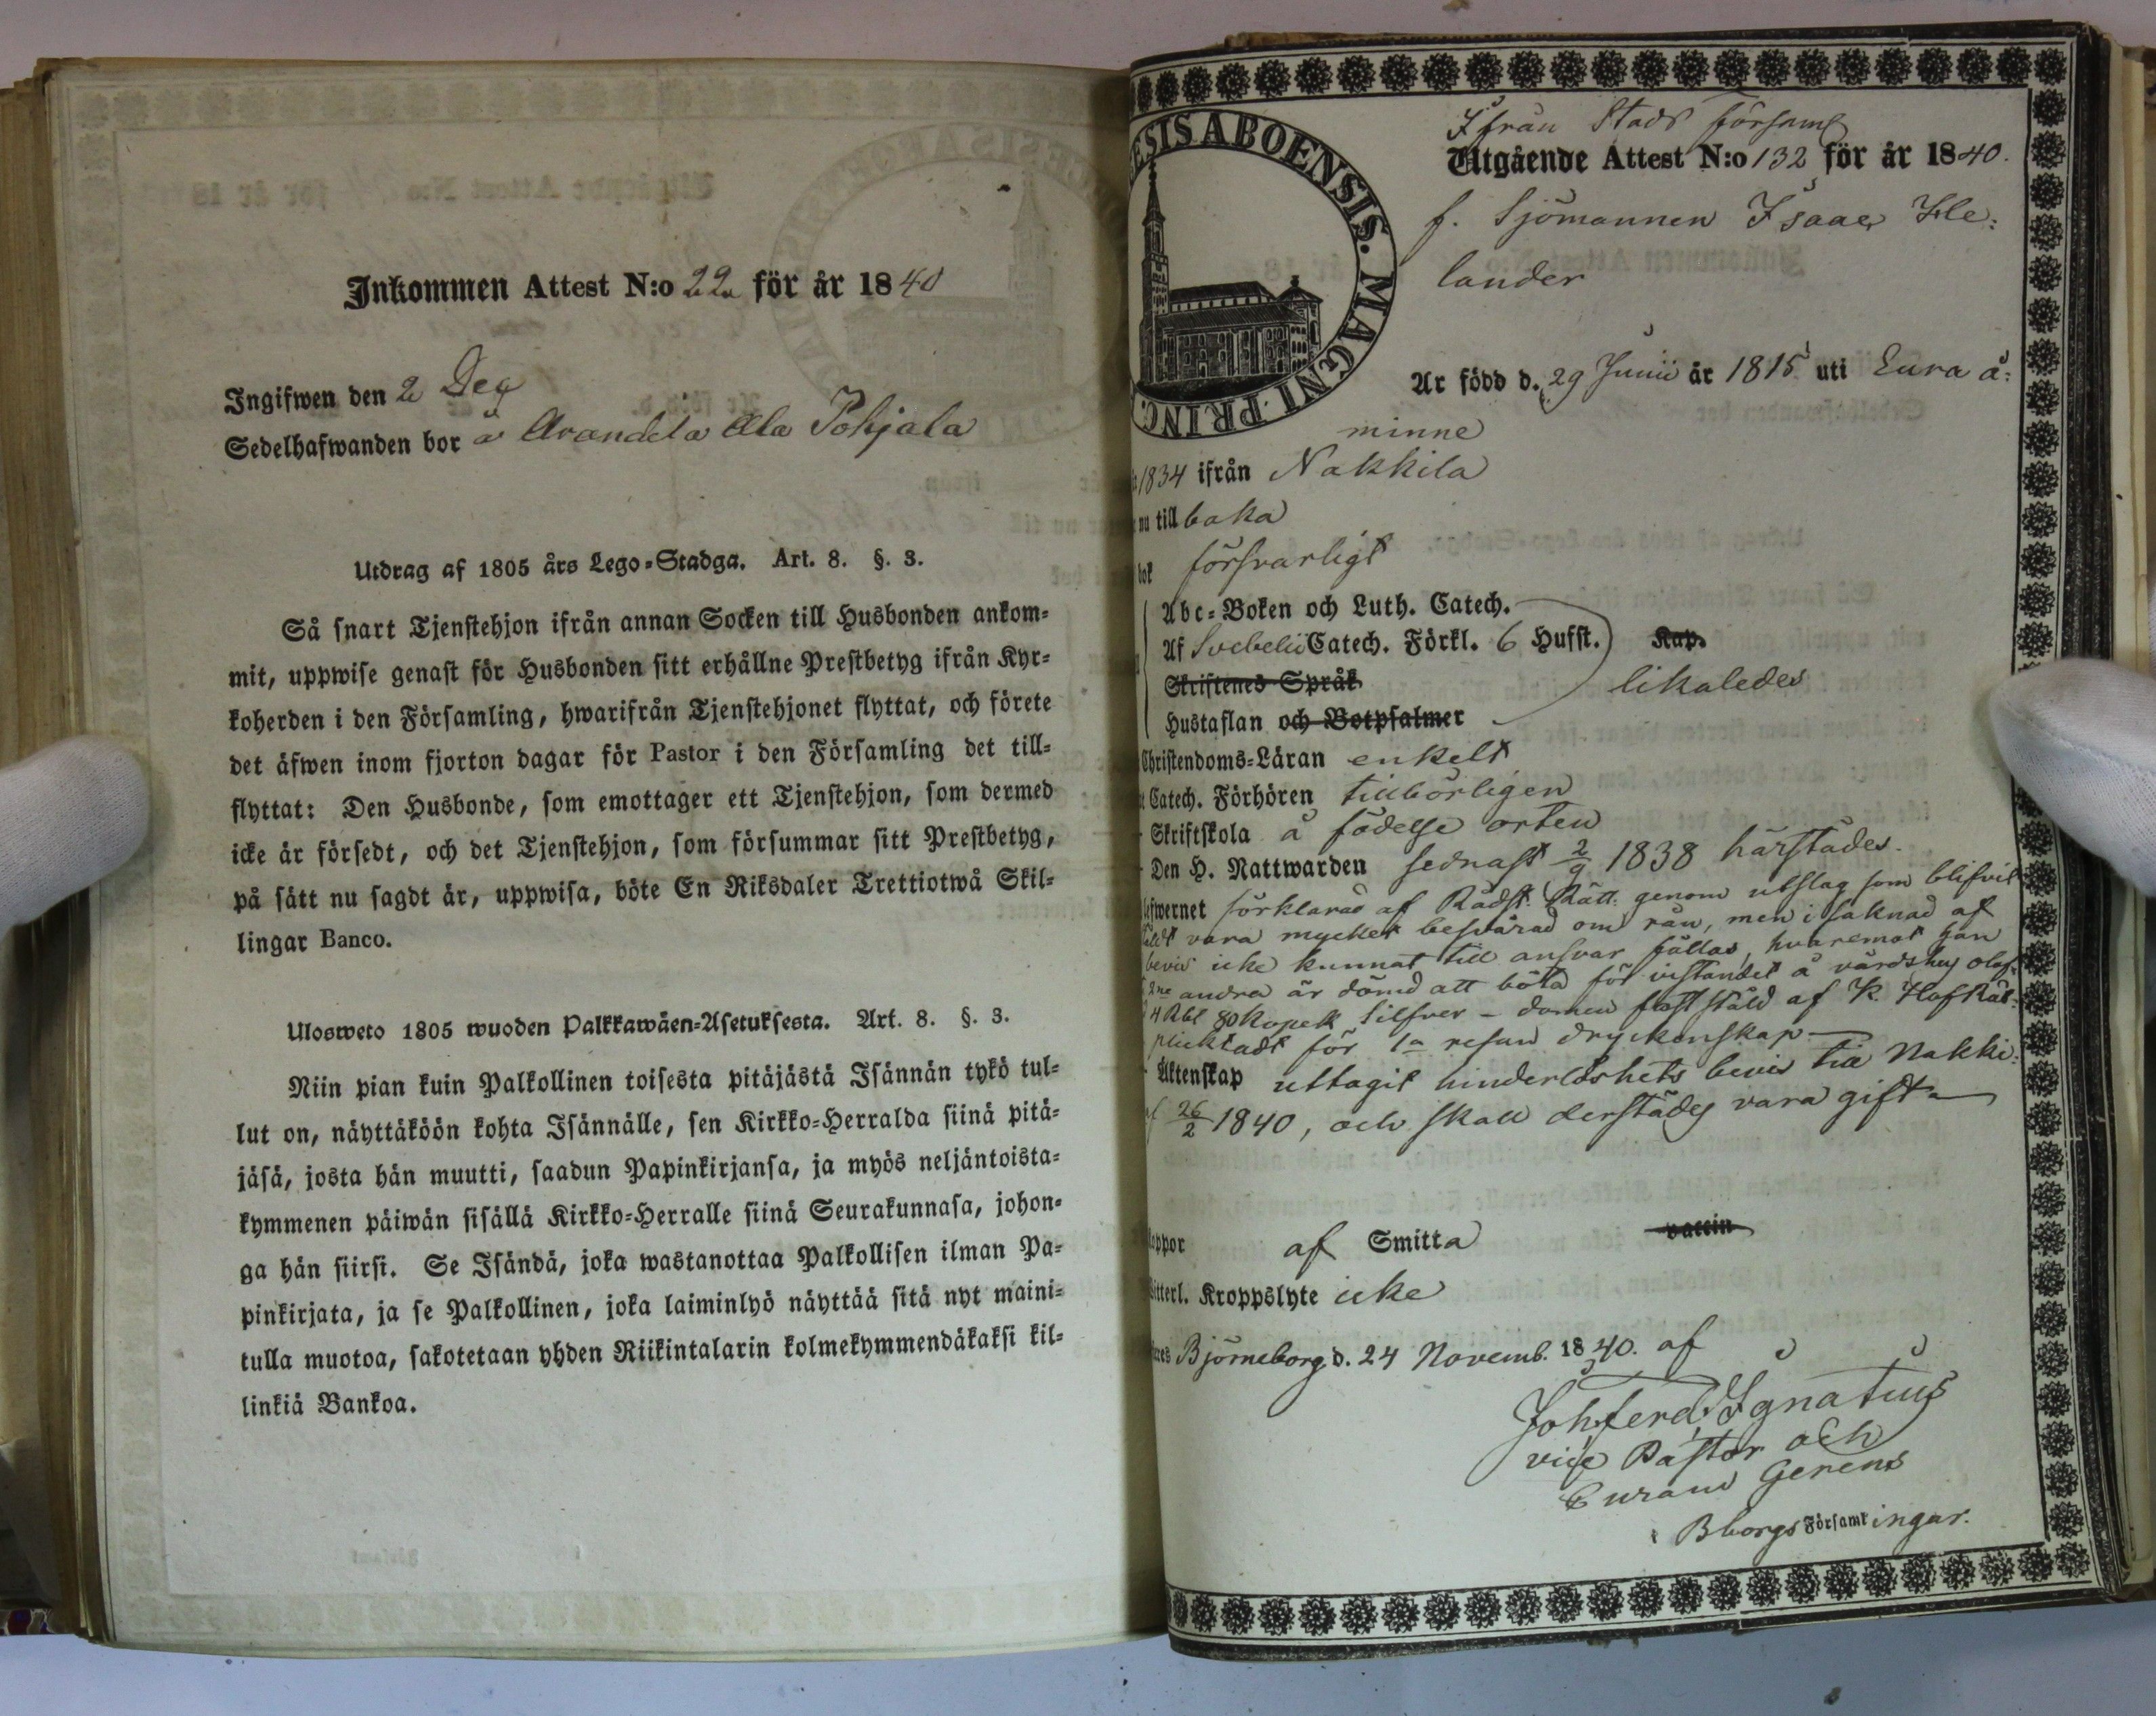 Inkommen Attest N:o 22 för år 1840
Ingifwen den 2 Dec
Sedelhafwanden bor å Arandila Ala Pohjala
Utdrag af 1805 års Lego-Stadga. Art. 8. §. 3.
Så snart Tjenstehjon ifrån annan Socken till Husbonden ankom-
mit, uppwise genast för Husbonden sitt erhållne Prestbetyg ifrån Kyr-
koherden i den Församling, hwarifrån Tjenstehjonet flyttat, och förete
det äfwen inom fjorton dagar för Pastor i den Församling det till-
flyttat: Den Husbonde, som emottager ett Tjenstehjon, som dermed
icke är försedt, och det Tjenstehjon, som försummar sitt Prestbetyg,
på sätt nu sagdt är, uppwisa, böte En Riksdaler Trettiotwå Skil-
lingar Banco.
Ulosweto 1805 wuoden Palkkawäen-Asetuksesta. Art. 8. §. 3.
Niin pian kuin Palkollinen toisesta pitäjästä Isännän tykö tul-
lut on, näyttäköön kohta Isännälle, sen Kirkko-Herralda siinä pitä-
jäsä, josta hän muutti, saadun Papinkirjansa, ja myös neljäntoista-
kymmenen päiwän sisällä Kirkko-Herralle siinä Seurakunnasa, johon-
ga hän siirsi. Se Isändä, joka wastanottaa Palkollisen ilman Pa-
pinkirjata, ja se Palkollinen, joka laiminlyö näyttää sitä nyt maini-
tulla muotoa, sakotetaan yhden Riikintalarin kolmekymmendäkaksi kil-
linkiä Bankoa.
ESIS ABOENSIS. MAGNI PRINC
Ifrån Stads församl
Utgående Attest N:o 132 för år 1840.
f. Sjömannen Isaac Hle:
lander
Är född d. 29 Junii år 1815 uti Eura å:
minne
1834 ifrån Nakkila
nu tillbaka
bok försvarligt
Abc-Boken och Luth. Catech.
Af Svebelii Catech. Förkl. 6 Hufst. Kap.
Skriftenes Språk likaledes
Hustaflan och Botpsalmer
Christendoms-Läran enkelt
Catech. Förhören tillbörligen
Skriftskola å födelse orten
Den H. Nattwarden sednast 2/9 1838 härstädes.
efwernet förklarad af Rådst. Rätt. genom utslag som blifvit
vara mycket besvärad om rån, men i saknad af
bevis icke kunnat till ansvar fällas, hvaremot han
andra är dömd att böta för vistandet å värdshus
4 Rbl 80 kopek silfver – domen fastställd af K. HofRät:
plicktadt för 1a resan dryckenskap –
Äktenskap uttagit hinderlöshets bevis till Nakki:
26/2 1840, och skall derstädes vara gift
oppor af Smitta vaccin
itterl. Kroppslyte icke
Björneborg d. 24 Novemb. 1840. af
Joh. Ferd. Ignatius
vice Pastor och
Curam Gerens
i Bborgs Församlingar.